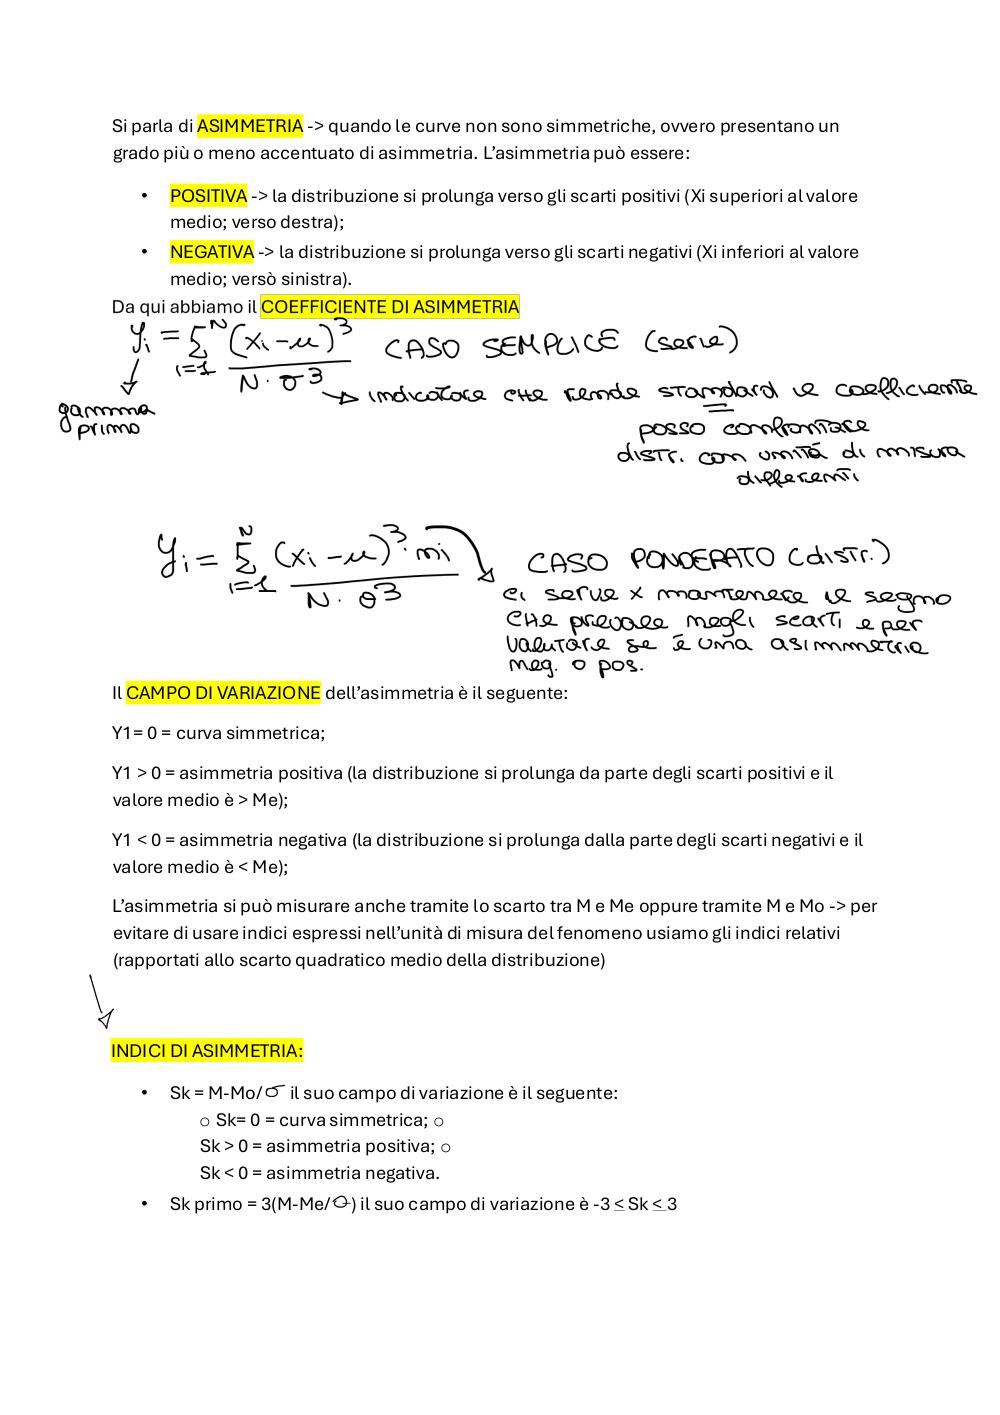 Si parla di ASIMMETRIA -> quando le curve non sono simmetriche, ovvero presentano un
grado più o meno accentuato di asimmetria. L'asimmetria può essere:
• POSITIVA -> la distribuzione si prolunga verso gli scarti positivi (Xi superiori al valore
medio; verso destra);
• NEGATIVA -> la distribuzione si prolunga verso gli scarti negativi (Xi inferiori al valore
medio; versò sinistra).
Da qui abbiamo il COEFFICIENTE DI ASIMMETRIA
γi = Σ i=1 N (xi - μ)³ / N · σ³ CASO SEMPLICE (serie)
indicatore che rende standard il coefficiente
gamma
primo
posso confrontare
distr. con unità di misura
differenti
γi = Σ i=1 N (xi - μ)³ · ni / N · σ³ CASO PONDERATO (distr.)
ci serve x mantenere il segno
che prevale negli scarti e per
valutare se è una asimmetria
neg. o pos.
Il CAMPO DI VARIAZIONE dell'asimmetria è il seguente:
Y1= 0 = curva simmetrica;
Y1 > 0 = asimmetria positiva (la distribuzione si prolunga da parte degli scarti positivi e il
valore medio è > Me);
Y1 < 0 = asimmetria negativa (la distribuzione si prolunga dalla parte degli scarti negativi e il
valore medio è < Me);
L'asimmetria si può misurare anche tramite lo scarto tra M e Me oppure tramite M e Mo -> per
evitare di usare indici espressi nell'unità di misura del fenomeno usiamo gli indici relativi
(rapportati allo scarto quadratico medio della distribuzione)
INDICI DI ASIMMETRIA:
• Sk = M-Mo/σ il suo campo di variazione è il seguente:
○ Sk= 0 = curva simmetrica; ○
Sk > 0 = asimmetria positiva; ○
Sk < 0 = asimmetria negativa.
• Sk primo = 3(M-Me/σ) il suo campo di variazione è -3 ≤ Sk ≤ 3